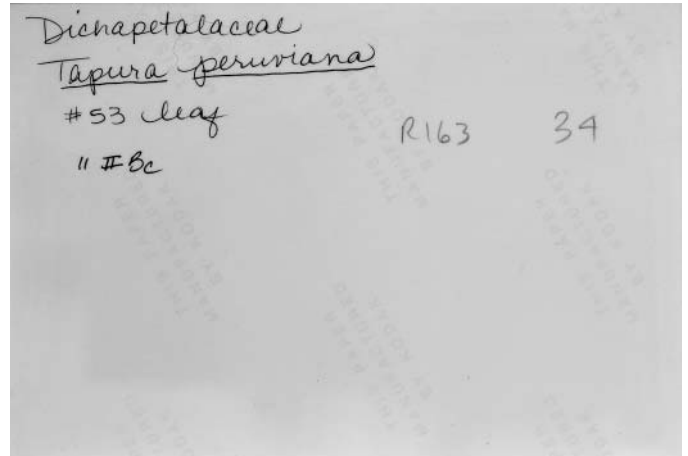 Dichapetalaceae
Tapura peruviana
#53 leaf
R163 34
" II Bc
THIS PAPER
MANUFACTURED
BY KODAK